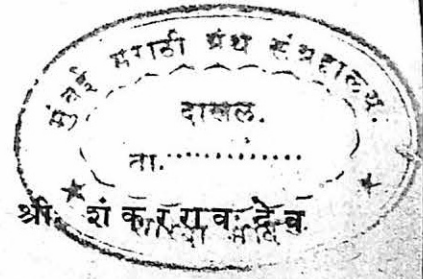 मुंबई मराठी ग्रंथ संग्रहालय.
दाखल.
ता..............
श्री. शंकरराव देव